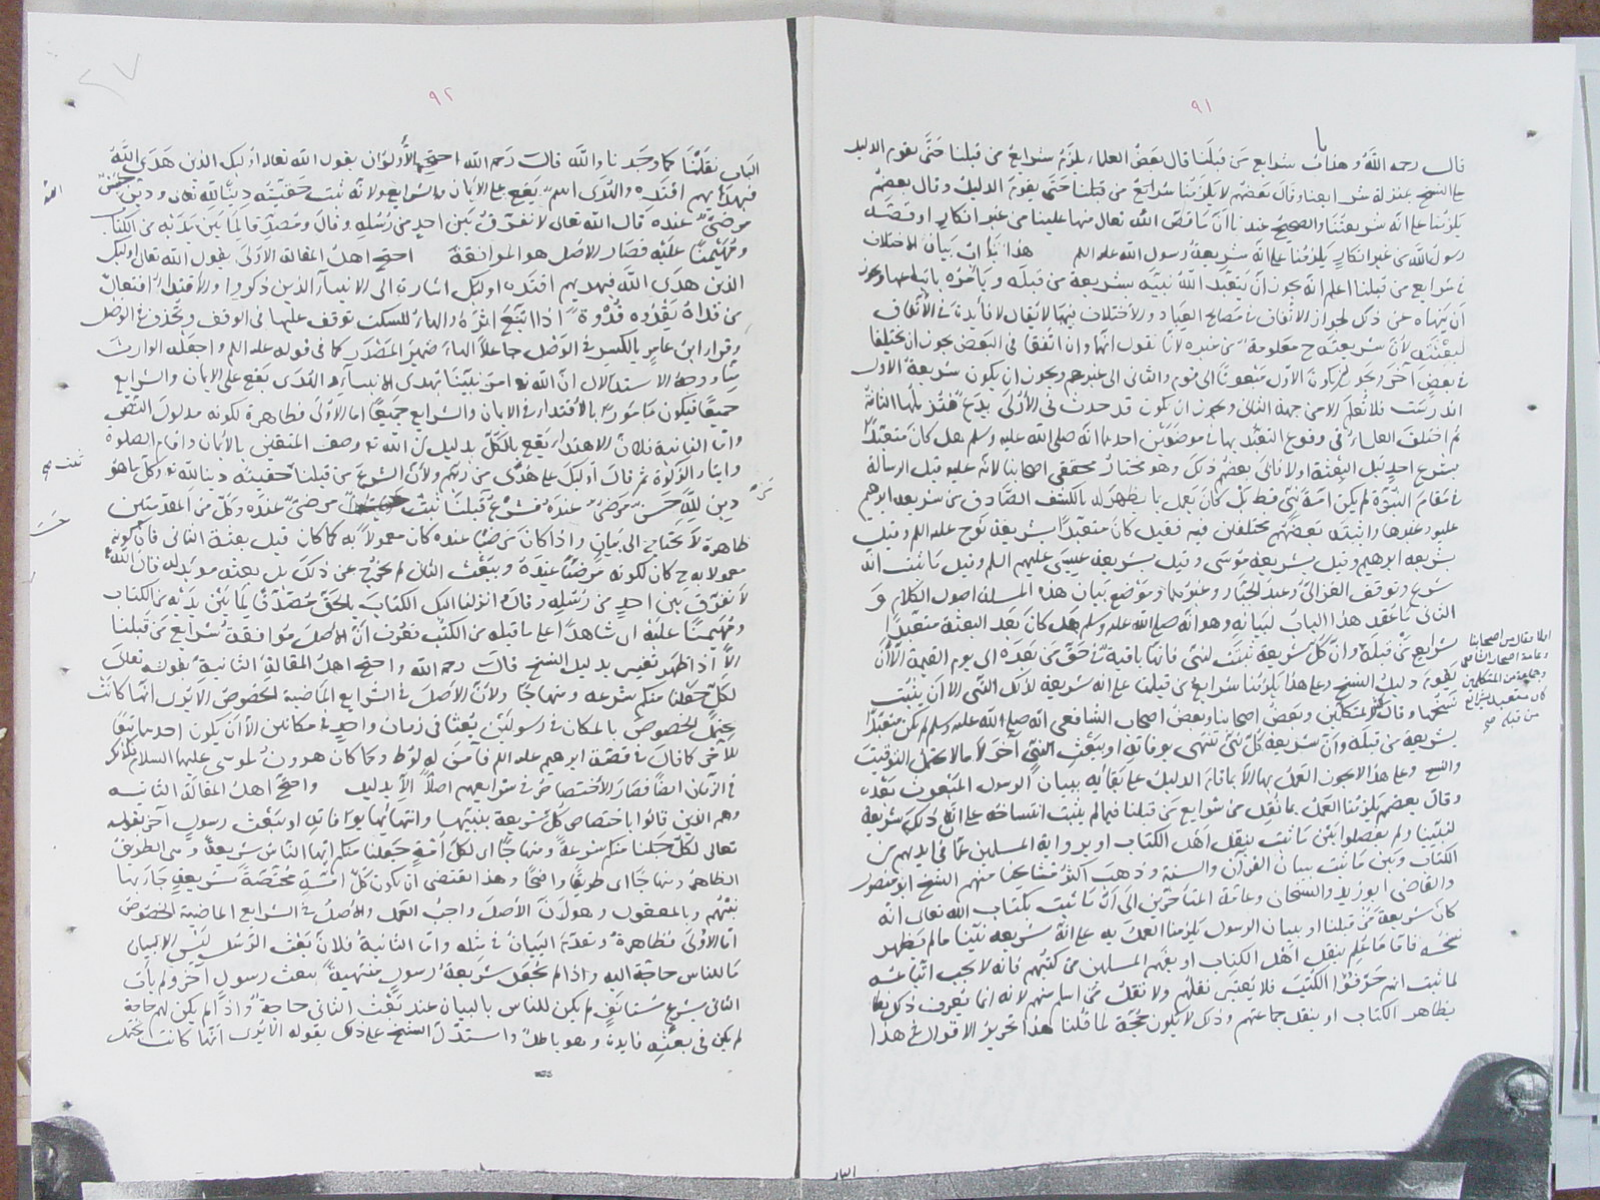 ٩١
قال رحمه الله وهذا باب شرايع من قبلنا قال بعض العلماء يلزم شرايع من قبلنا حتى يقوم الدليل
على النسخ بمنزلة شرايعنا وقال بعضهم لا يلزمنا شرايع من قبلنا حتى يقوم الدليل وقال بعضهم
يلزمنا على انه شريعتنا والصحيح عندنا ان ما قص الله تعالى منها علينا من غير انكار او قصه
رسول الله من غير انكار يلزمنا على انه شريعة رسول الله عليه السلم هذا باب بيان الاختلاف
في شرايع من قبلنا اعلم انه يجوز ان يتعبد الله نبيه بشريعة من قبله ويأمره باتباعها ويجوز
ان ينهاه عن ذلك لجواز الاتفاق في مصالح العباد والاختلاف فيها لا يقال لا فايدة في الاتفاق
لبعثته لأن شريعته ح معلومة من غيره لانا نقول انهما وان اتفقا في البعض يجوز ان يختلفا
في بعض آخر ويجوز ان يكون الاول مبعوثا الى قوم والثاني الى غيرهم ويجوز ان يكون شريعة الاول
اندرست فلا تعلم الا من جهة الثاني ويجوز ان يكون قد حدث في الاولى بدع فتزيلها الثانية
ثم اختلف العلماء في وقوع التعبد بها في موضعين احدهما انه صلى الله عليه وسلم هل كان متعبدا
بشرع احد قبل البعثة اولا فأبى بعضهم ذلك وهو مختار محققي اصحابنا لانه عليه قبل الرسالة
في مقام النبوة لم يكن امة نبي قط بل كان يعمل بما يظهر له بالكشف الصادق من شريعة ابرهيم
عليه وغيرها واثبته بعضهم مختلفين فيه فقيل كان متعبدا بشريعة نوح عليه السلم وقيل
بشريعة ابرهيم وقيل بشريعة موسى وقيل بشريعة عيسى عليهم السلم وقيل ما ثبت انه
شرع وتوقف الغزالي وعبد الجبار وغيرهما وموضع بيان هذه المسئلة اصول الكلام و
الثاني ما عقد هذا الباب لبيانه وهو انه صلى الله عليه وسلم هل كان بعد البعثة متعبدا
بشرايع من قبله وان كل شريعة ثبتت لنبي فانها باقية في حق من بعده الى يوم القيمة الا ان
يقوم دليل النسخ وعلى هذا يلزمنا شرايع من قبلنا على انه شريعة لذلك النبي الا ان يثبت
نسخها وقال اكثر المتكلمين وبعض اصحابنا وبعض اصحاب الشافعي انه صلى الله عليه وسلم لم يكن متعبدا
بشريعة من قبله وان شريعة كل نبي تنتهي بوفاته او ببعث النبي آخر الا ما لا يحتمل التوقيت
والنسخ وعلى هذا لا يجوز العمل بها الا بما قام الدليل على بقائه ببيان الرسول المبعوث بعده
وقال بعضهم يلزمنا العمل بما نقل من شرايع من قبلنا فيما لم يثبت انتساخه على ان ذلك شريعة
لنبينا ولم يفصلوا بين ما ثبت بنقل اهل الكتاب او برواية المسلمين عما في ايديهم من
الكتاب وبين ما ثبت ببيان القرآن والسنة وذهب اكثر مشايخنا منهم الشيخ ابو منصور
والقاضي ابو زيد والشيخان وعامة المتأخرين الى ان ما ثبت بكتاب الله تعالى انه
كان شريعة من قبلنا او ببيان الرسول يلزمنا العمل به على انه شريعة نبينا ما لم يظهر
نسخه فاما ما علم بنقل اهل الكتاب او بفهم المسلمين من كتبهم فانه لا يجب اتباعه
لما ثبت انهم حرفوا الكتب فلا يعتبر نقلهم ولا نقل من اسلم منهم لانه انما يعرف ذلك
بظاهر الكتاب او بنقل جماعتهم وذلك لا يكون حجة لما قلنا هذا تحرير الاقوال في هذا
اولا فقال من اصحابنا
وعامة اصحاب الشافعي
وجماعة من المتكلمين
كان متعبدا بشرايع
من قبله صح
٩٢
الباب نقلنا كما وجدنا والله قال رحمه الله احتج الأولون بقول الله تعالى اوليك الذين هدى الله
فبهداهم اقتده والهدى اسم يقع على الايمان والشرايع ولانه ثبت حقيته دينا لله تعالى ودين الله حسن
مرضي عنده قال الله تعالى لا نفرق بين احد من رسله وقال ومصدقا لما بين يديه من الكتاب
ومهيمنا عليه فصار الاصل هو الموافقة احتج اهل المقالة الاولى بقول الله تعالى اوليك
الذين هدى الله فبهديهم اقتده اوليك اشارة الى الانبياء الذين ذكروا والاقتداء افتعال
من قداه يقدوه قدوة اذا اتبع اثره والهاء للسكت توقف عليها في الوقف وتحذف في الوصل
وقراء ابن عامر بالكسر في الوصل جاعلا الهاء ضمير المصدر كما في قوله عليه السلم واجعله الوارث
منا ووجه الاستدلال ان الله تعالى امر نبينا بهدى الانبياء والهدى يقع على الايمان والشرايع
جميعا فيكون مأمورا بالاقتداء في الايمان والشرايع جميعا اما الاولى فظاهرة لكونه مدلول النص
واما الثانية فلان الاهتداء يقع بالكل بدليل ان الله تعالى وصف المتقين بالايمان واقام الصلوة
وايتاء الزكوة ثم قال اوليك على هدى من ربهم ولأن الشرع من قبلنا حقيته دينا لله تعالى وكل ما هو
دين لله حسن مرضي عنده فشرع قبلنا ثبت مرضي عنده وكل من المقدمتين
ظاهرة لا يحتاج الى بيان واذا كان مرضيا عنده كان معمولا به كما كان قبل بعثة الثاني فان كونه
معمولا به ح كان لكونه مرضيا عنده وببعث الثاني لم يخرج عن ذلك بل بعثه مويد له قال الله
لا نفرق بين احد من رسله وقال وانزلنا اليك الكتاب بالحق مصدقا لما بين يديه من الكتاب
ومهيمنا عليه اي شاهدا على ما قبله من الكتب فعرف ان الاصل موافقة شرايع من قبلنا
الا اذا ظهر تغيير بدليل النسخ قال رحمه الله واحتج اهل المقالة الثانية بقوله تعالى
لكل جعلنا منكم شرعه ومنهاجا ولأن الاصل في الشرايع الماضية الخصوص الا يرى انها كانت
يحتمل الخصوص بالمكان في رسولين بعثا في زمان واحد في مكانين الا ان يكون احدهما تبعا
للآخر كما قال في قصة ابرهيم عليه السلم فآمن له لوط وكما كان هرون لموسى عليهما السلام فكذلك
في الزمان ايضا فصار الاختصاص في شرايعهم اصلا الا بدليل واحتج اهل المقالة الثانيه
وهم الذين قالوا باختصاص كل شريعة بنبيها وانتهائها بوفاته او ببعث رسول آخر بقوله
تعالى لكل جعلنا منكم شرعة ومنهاجا اي لكل امة جعلنا منكم ايها الناس شريعة وهي الطريق
الظاهر ومنهاجا اي طريقا واضحا وهذا يقتضي ان يكون كل امة مختصة بشريعة جاء بها
نبيهم وبالمعقول وهو ان الاصل واجب العمل والاصل في الشرايع الماضية الخصوص
اما الاولى فظاهرة وتقدم البيان في مثله واما الثانية فلان بعث الرسل ليس الا لبيان
ما للناس حاجة اليه واذا لم يجعل شريعة رسول منتهية ببعث رسول آخر ولم يأت
الثاني بشرع مستانف لم يكن للناس بالبيان عند بعث الثاني حاجة واذا لم يكن لهم حاجة
لم يكن في بعثه فايدة وهو باطل واستدل الشيخ على ذلك بقوله الا يرى انها كانت يحتمل